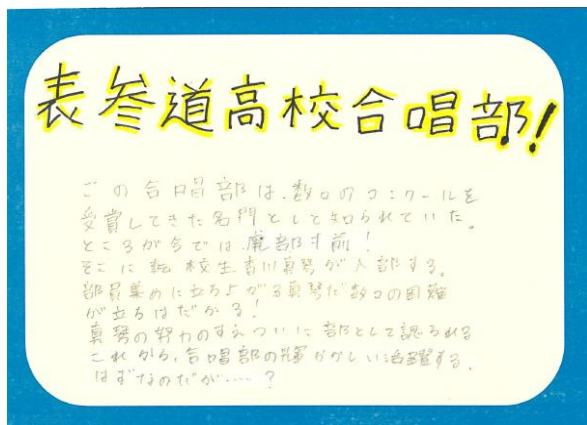 表参道高校合唱部!
この合唱部は、数々のコンクールを
受賞してきた名門としと知られていた。
ところが今では、廃部寸前!
そこに転校生香川真琴が入部する。
部員集めに立ち上がる真琴だ数々の困難
が立ちはだかる!
真琴の努力のすえついに部として認られる
これから、合唱部の輝かかしい活躍する。
はずなのだが……?